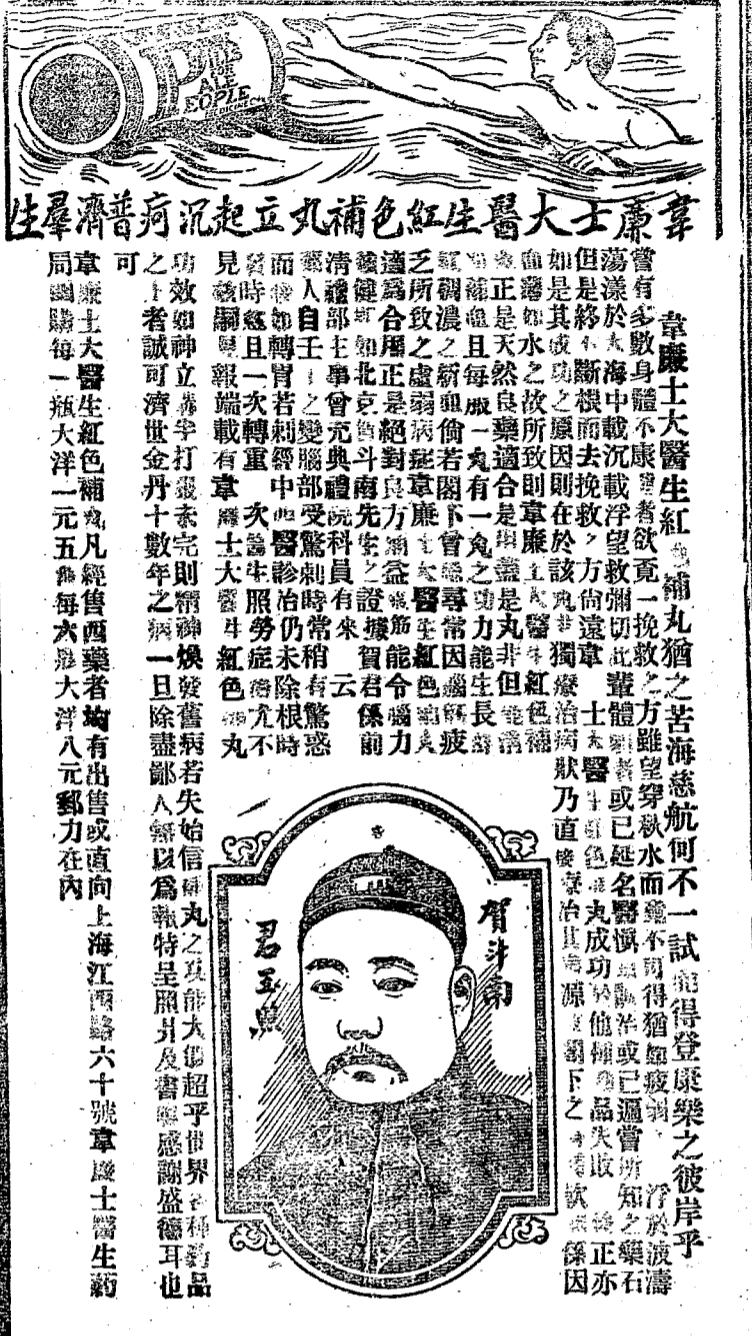 PILLS
FOR
PALE
PEOPLE
韋廉士大醫生紅色補丸立起沉疴普濟羣生
韋廉士大醫生紅色補丸猶之苦海慈航何不一試能得登康樂之彼岸乎
嘗有多數身體不康健者欲覓一挽救之方雖望穿秋水而難不可得猶如疲弱 浮於波濤
蕩漾於大海中載沉載浮望救彌切此輩體弱者或已延名醫慎 診治或已遍嘗所知之藥石
但是終不斷根而去挽救之方尙遠韋 士大醫生紅色補丸成功於他種藥品失敗 後正亦
如是其成功之原因則在於該丸非獨療治病狀乃直接療治其病源 閣下之 軟 係因
血薄如水之故所致則韋廉士大醫生紅色補
丸正是天然良藥適合是 蓋是丸非但能清
血補血且每服一丸有一丸之功力能生長鮮
紅稠濃之新血倘若閣下曾經尋常因腦筋疲
乏所致之虛弱病症韋廉士大醫生紅色補丸
適爲合用正是絕對良方補益腦筋能令腦力
強健卽如北京賀斗南先生之證據賀君係前
淸禮部主事曾充典禮院科員有來 云
鄙人自壬 之變腦部受驚刺時常稍有驚惑
而後如轉胃若刺經中西醫診治仍未除根時
發時愈且一次轉重 次 生照勞症 尤不
見 嗣見報端載有韋廉士大醫生紅色補丸
功效如神立購半打 未完則精神煥發舊病若失始信 丸之功能大 超乎世界各種藥品
之上者誠可濟世金丹十數年之病一旦除盡鄙人無以爲報特呈照片及書 感謝盛德耳也
可
韋廉士大醫生紅色補丸凡經售西藥者均有出售或直向上海江西路六十號韋廉士醫生葯
局函購每一瓶大洋一元五角每六瓶大洋八元郵力在內
賀斗南
君玉照